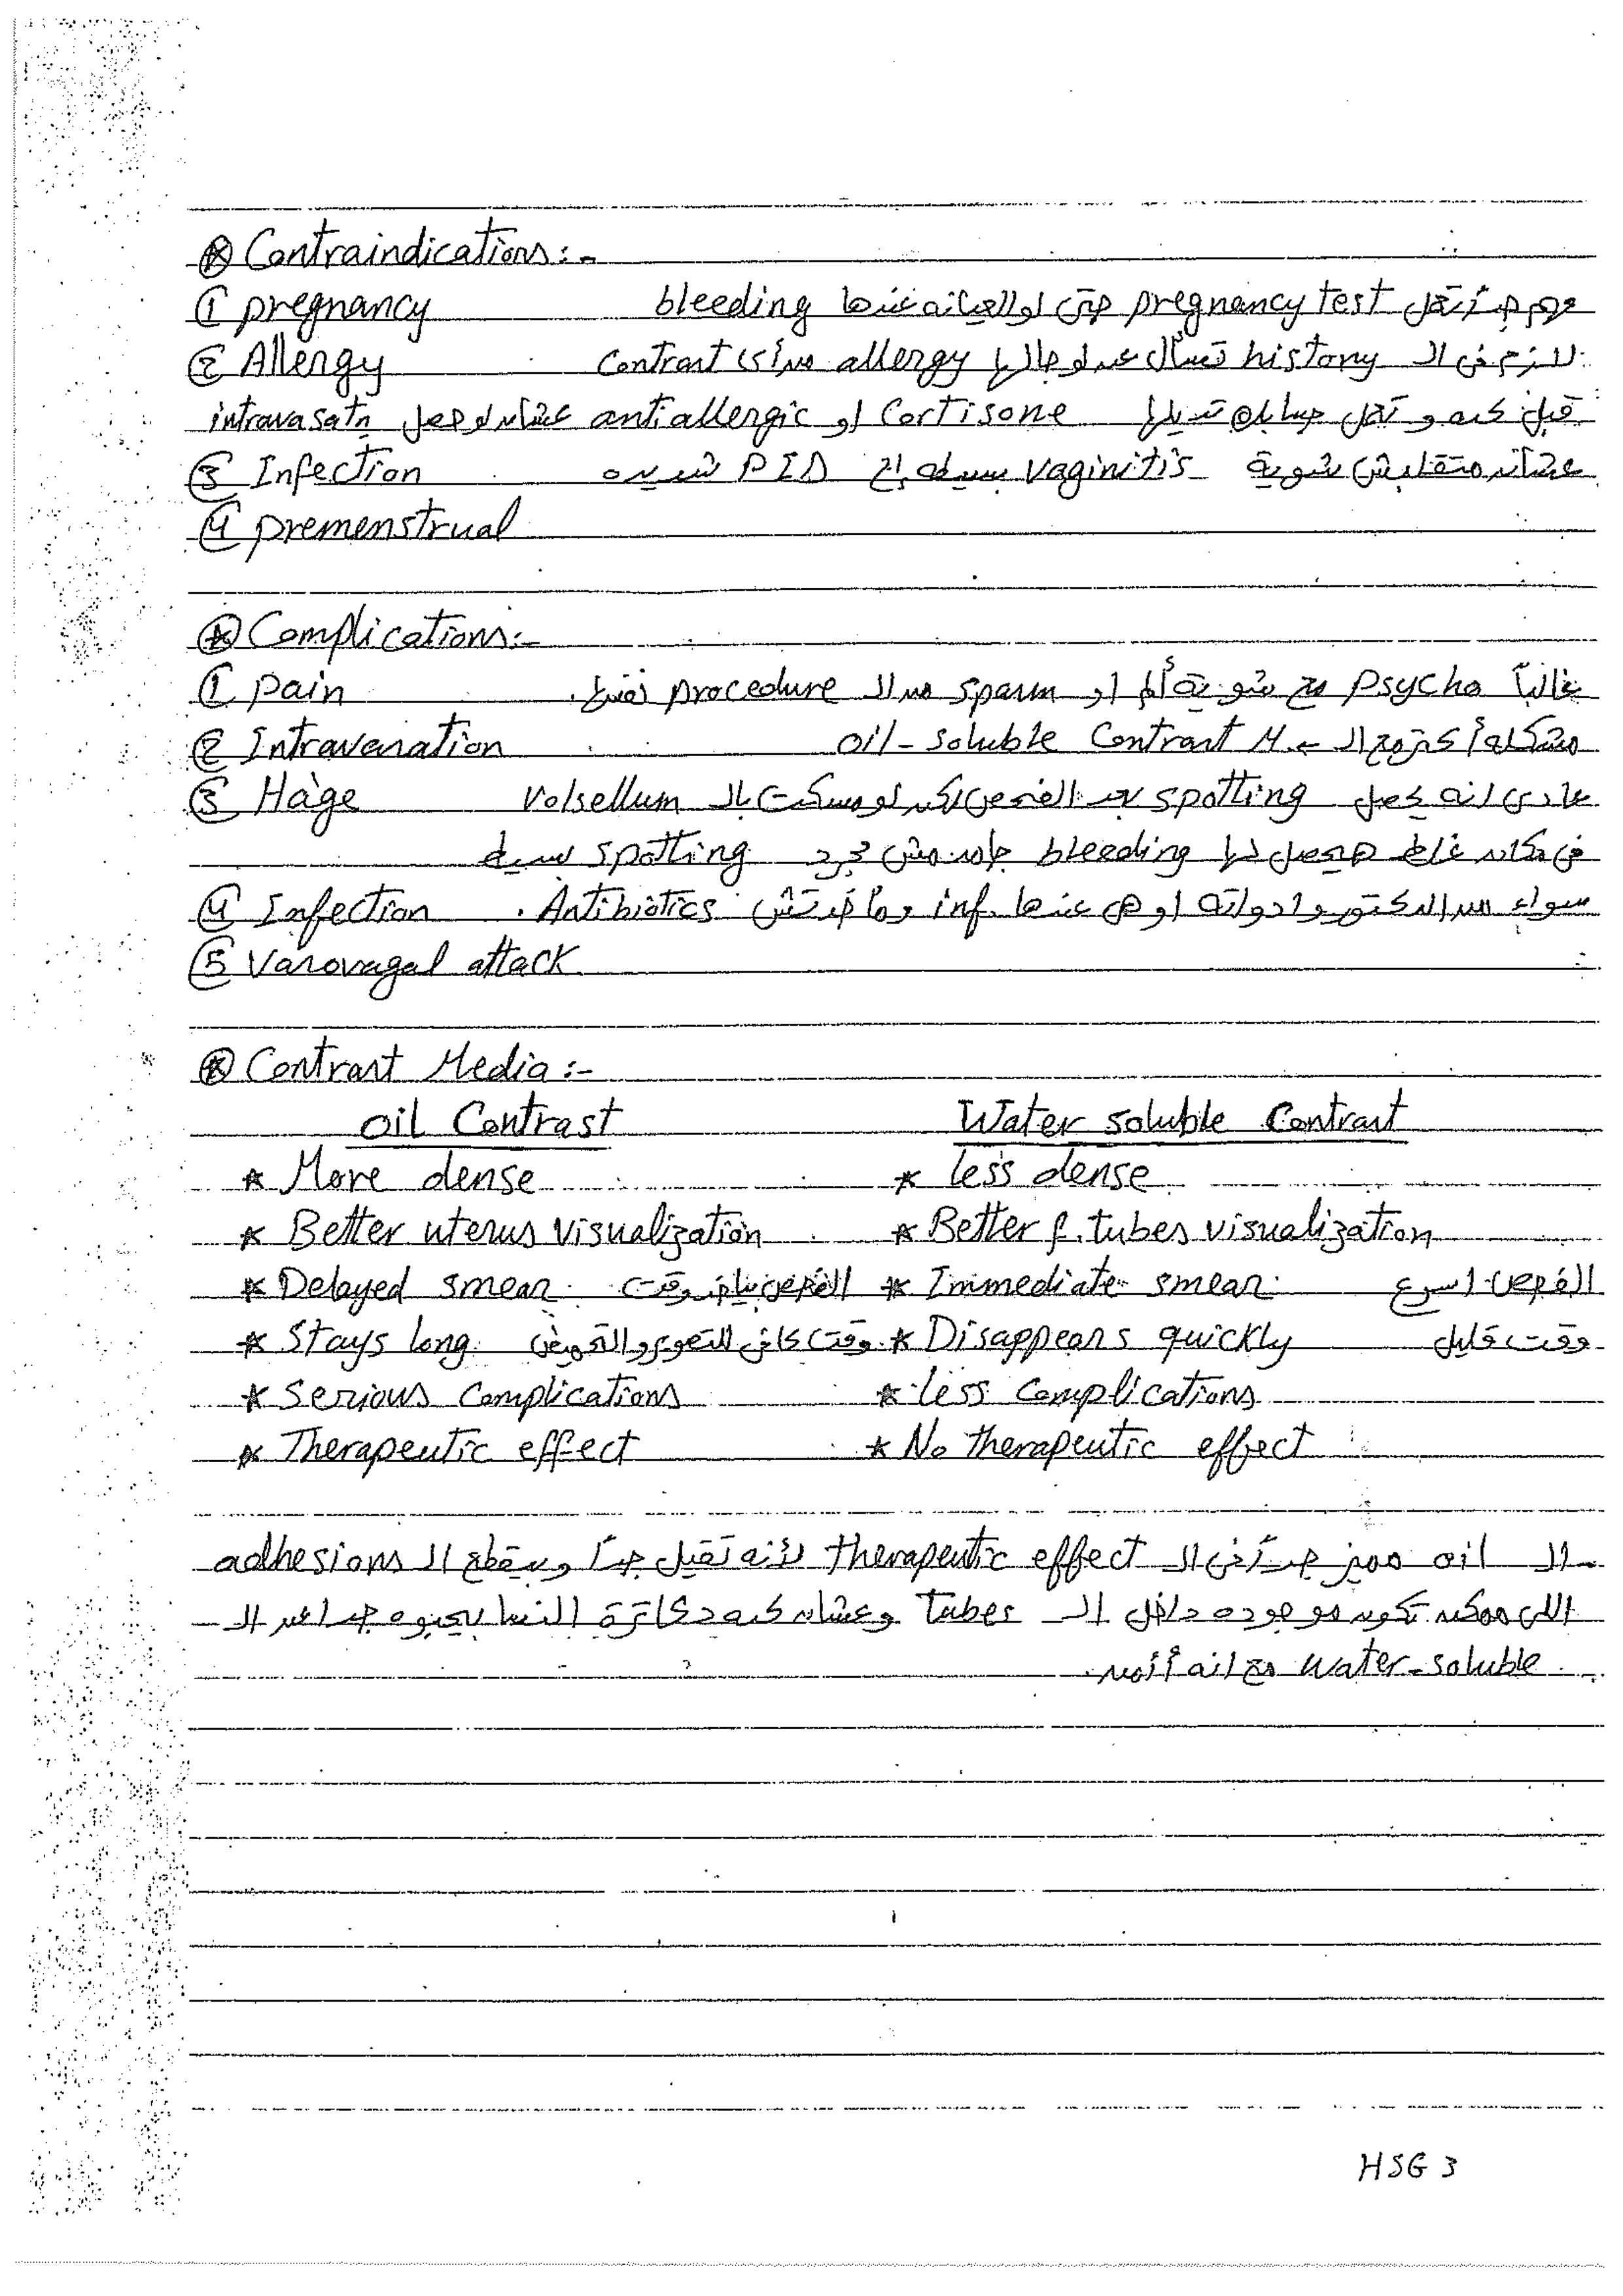 ⊛ Contraindications:-
① pregnancy مهم جداً تعمل pregnancy test حتى لو العيانه عندها bleeding
② Allergy لازم في الـ history تسأل عن لو جالها allergy من أي contrast
قبل كده و تعمل حسابك تديلها Cortisone او antiallergic عشان لو حصل intravasatn
③ Infection عشان متقلبش شوية vaginitis بسيطه إلى PID شديده
④ premenstrual
⊛ Complications:-
① pain غالباً psycho مع شوية ألم او spasm من الـ procedure نفسها.
② Intravasation مشكله أكتر مع الـ ← oil-soluble Contrast M
③ Hage عادي انه يحصل spotting بعد الفحص لكن لو مسكت بالـ Volsellum
في مكان غلط هيحصل لها bleeding جامد مش مجرد spotting بسيط
④ Infection سواء من الدكتور وادواته او هي عندها inf. وما خدتش Antibiotics.
⑤ Vasovagal attack
⊛ Contrast Media:-
Oil Contrast Water soluble Contrast
* More dense * less dense
* Better uterus visualization * Better f. tubes visualization
* Delayed smear الفحص بياخد وقت * Immediate smear الفحص اسرع
* Stays long وقت كافي للتصوير والتحميض * Disappears quickly وقت قليل
* Serious Complications * less Complications
* Therapeutic effect * No therapeutic effect
- الـ oil مميز جداً في الـ therapeutic effect لأنه تقيل جداً وبيقطع الـ adhesions
اللي ممكن تكون موجوده داخل الـ Tubes وعشان كده دكاترة النسا بيحبوه جدا عن الـ
water-soluble مع انه أأمن.
HSG 3